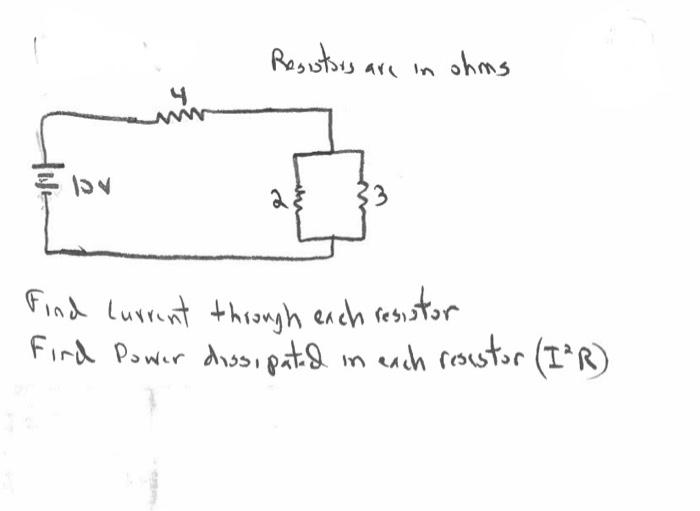 Resistors are in ohms
4
10V
2
3
Find current through each resistor
Find Power dissipated in each resistor (I²R)